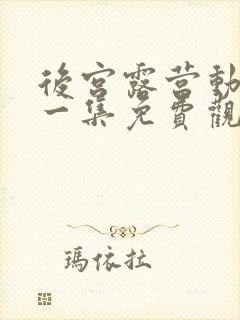 後宮露營動
一集免費觀
瑪依拉